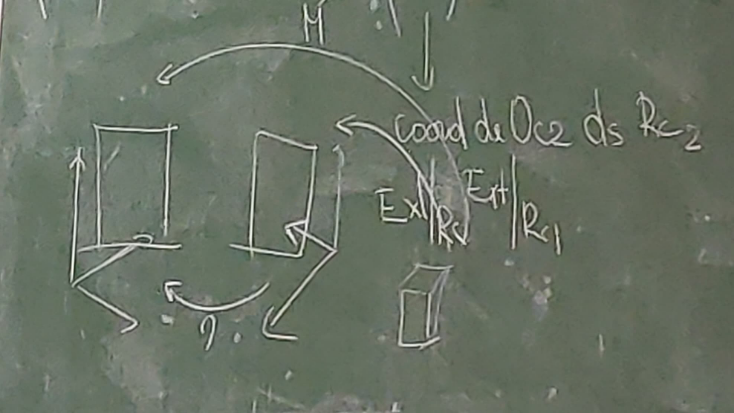 M
coord de Oc2 ds Rc2
Ext|Rc Ext|Rc1
?